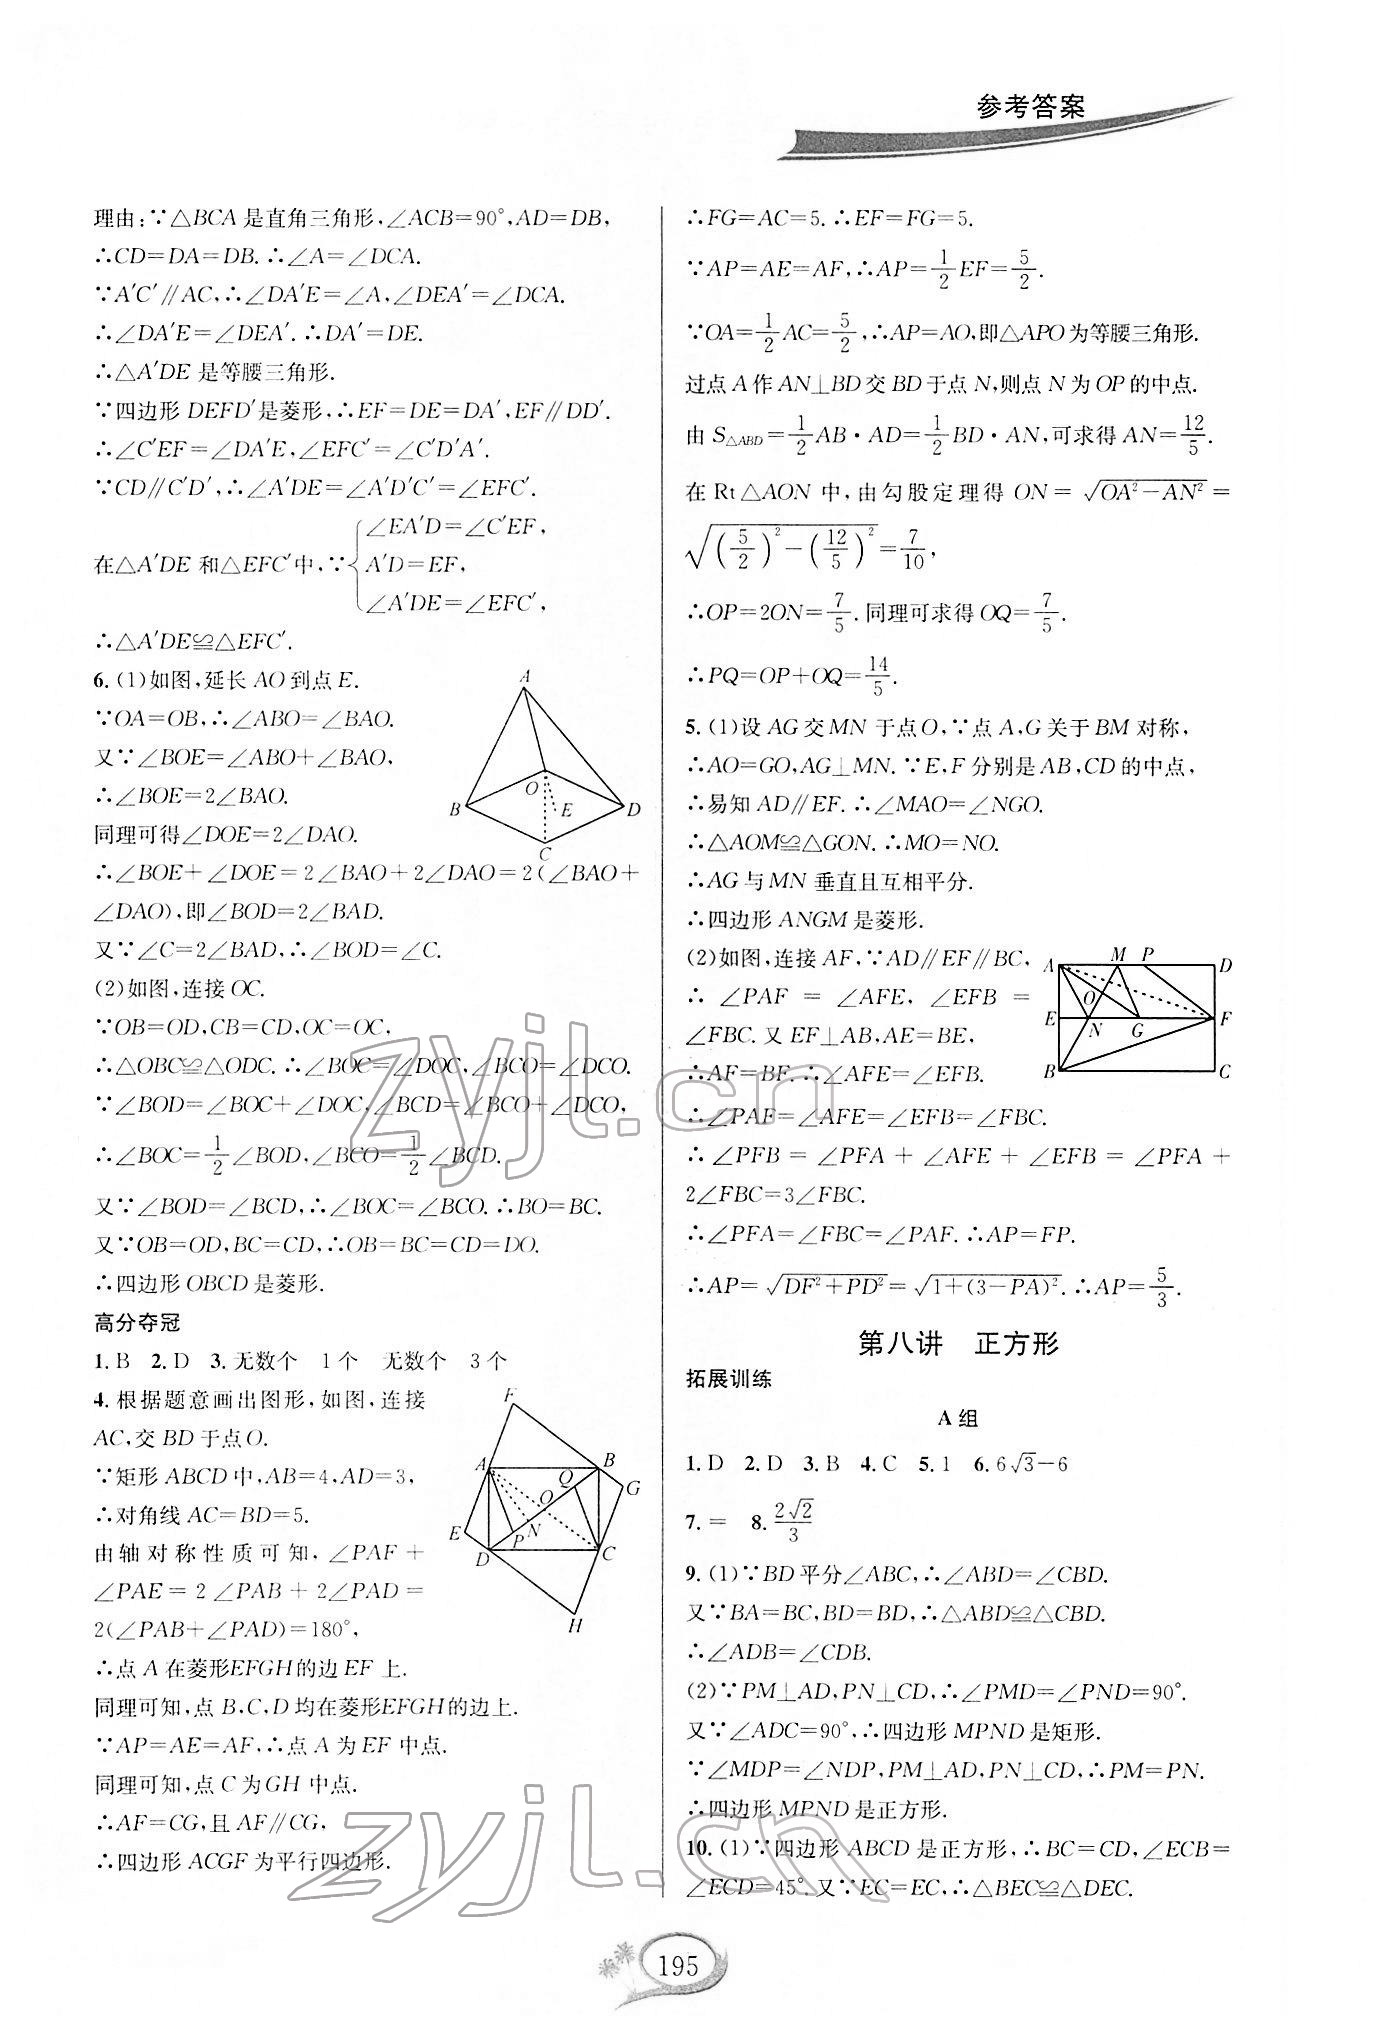 参考答案
理由:∵△BCA是直角三角形,∠ACB=90°,AD=DB,
∴CD=DA=DB.∴∠A=∠DCA.
∵A′C′∥AC,∴∠DA′E=∠A,∠DEA′=∠DCA.
∴∠DA′E=∠DEA′.∴DA′=DE.
∴△A′DE是等腰三角形.
∵四边形DEFD′是菱形,∴EF=DE=DA′,EF∥DD′.
∴∠C′EF=∠DA′E,∠EFC′=∠C′D′A′.
∵CD∥C′D′,∴∠A′DE=∠A′D′C′=∠EFC′.
在△A′DE和△EFC′中,∵{∠EA′D=∠C′EF,
A′D=EF,
∠A′DE=∠EFC′,
∴△A′DE≌△EFC′.
6.(1)如图,延长AO到点E.
∵OA=OB,∴∠ABO=∠BAO.
又∵∠BOE=∠ABO+∠BAO,
∴∠BOE=2∠BAO.
同理可得∠DOE=2∠DAO.
A
B
O
E
D
C
∴∠BOE+∠DOE=2∠BAO+2∠DAO=2(∠BAO+
∠DAO),即∠BOD=2∠BAD.
又∵∠C=2∠BAD,∴∠BOD=∠C.
(2)如图,连接OC.
∵OB=OD,CB=CD,OC=OC,
∴△OBC≌△ODC.∴∠BOC=∠DOC,∠BCO=∠DCO.
∵∠BOD=∠BOC+∠DOC,∠BCD=∠BCO+∠DCO,
∴∠BOC=1/2∠BOD,∠BCO=1/2∠BCD.
又∵∠BOD=∠BCD,∴∠BOC=∠BCO.∴BO=BC.
又∵OB=OD,BC=CD,∴OB=BC=CD=DO.
∴四边形OBCD是菱形.
高分夺冠
1.B 2.D 3.无数个 1个 无数个 3个
4.根据题意画出图形,如图,连接
AC,交BD于点O.
∵矩形ABCD中,AB=4,AD=3,
∴对角线AC=BD=5.
由轴对称性质可知,∠PAF+
∠PAE=2∠PAB+2∠PAD=
2(∠PAB+∠PAD)=180°,
F
A
B
Q
G
O
E
P
N
D
C
H
∴点A在菱形EFGH的边EF上.
同理可知,点B,C,D均在菱形EFGH的边上.
∵AP=AE=AF,∴点A为EF中点.
同理可知,点C为GH中点.
∴AF=CG,且AF∥CG,
∴四边形ACGF为平行四边形.
∴FG=AC=5.∴EF=FG=5.
∵AP=AE=AF,∴AP=1/2EF=5/2.
∵OA=1/2AC=5/2,∴AP=AO,即△APO为等腰三角形.
过点A作AN⊥BD交BD于点N,则点N为OP的中点.
由S△ABD=1/2AB·AD=1/2BD·AN,可求得AN=12/5.
在Rt△AON中,由勾股定理得ON=√(OA²-AN²)=
√((5/2)²-(12/5)²)=7/10,
∴OP=2ON=7/5.同理可求得OQ=7/5.
∴PQ=OP+OQ=14/5.
5.(1)设AG交MN于点O,∵点A,G关于BM对称,
∴AO=GO,AG⊥MN.∵E,F分别是AB,CD的中点,
∴易知AD∥EF.∴∠MAO=∠NGO.
∴△AOM≌△GON.∴MO=NO.
∴AG与MN垂直且互相平分.
∴四边形ANGM是菱形.
(2)如图,连接AF,∵AD∥EF∥BC,
∴∠PAF=∠AFE,∠EFB=
∠FBC.又EF⊥AB,AE=BE,
∴AF=BF.∴∠AFE=∠EFB.
A
M
P
D
O
E
N
G
F
B
C
∴∠PAE=∠AFE=∠EFB=∠FBC.
∴∠PFB=∠PFA+∠AFE+∠EFB=∠PFA+
2∠FBC=3∠FBC.
∴∠PFA=∠FBC=∠PAF.∴AP=FP.
∴AP=√(DF²+PD²)=√(1+(3-PA)²).∴AP=5/3.
第八讲 正方形
拓展训练
A组
1.D 2.D 3.B 4.C 5.1 6.6√3-6
7.= 8.2√2/3
9.(1)∵BD平分∠ABC,∴∠ABD=∠CBD.
又∵BA=BC,BD=BD,∴△ABD≌△CBD.
∴∠ADB=∠CDB.
(2)∵PM⊥AD,PN⊥CD,∴∠PMD=∠PND=90°.
又∵∠ADC=90°,∴四边形MPND是矩形.
∵∠MDP=∠NDP,PM⊥AD,PN⊥CD,∴PM=PN.
∴四边形MPND是正方形.
10.(1)∵四边形ABCD是正方形,∴BC=CD,∠ECB=
∠ECD=45°.又∵EC=EC,∴△BEC≌△DEC.
195
zyjl.cn
zyjl.cn